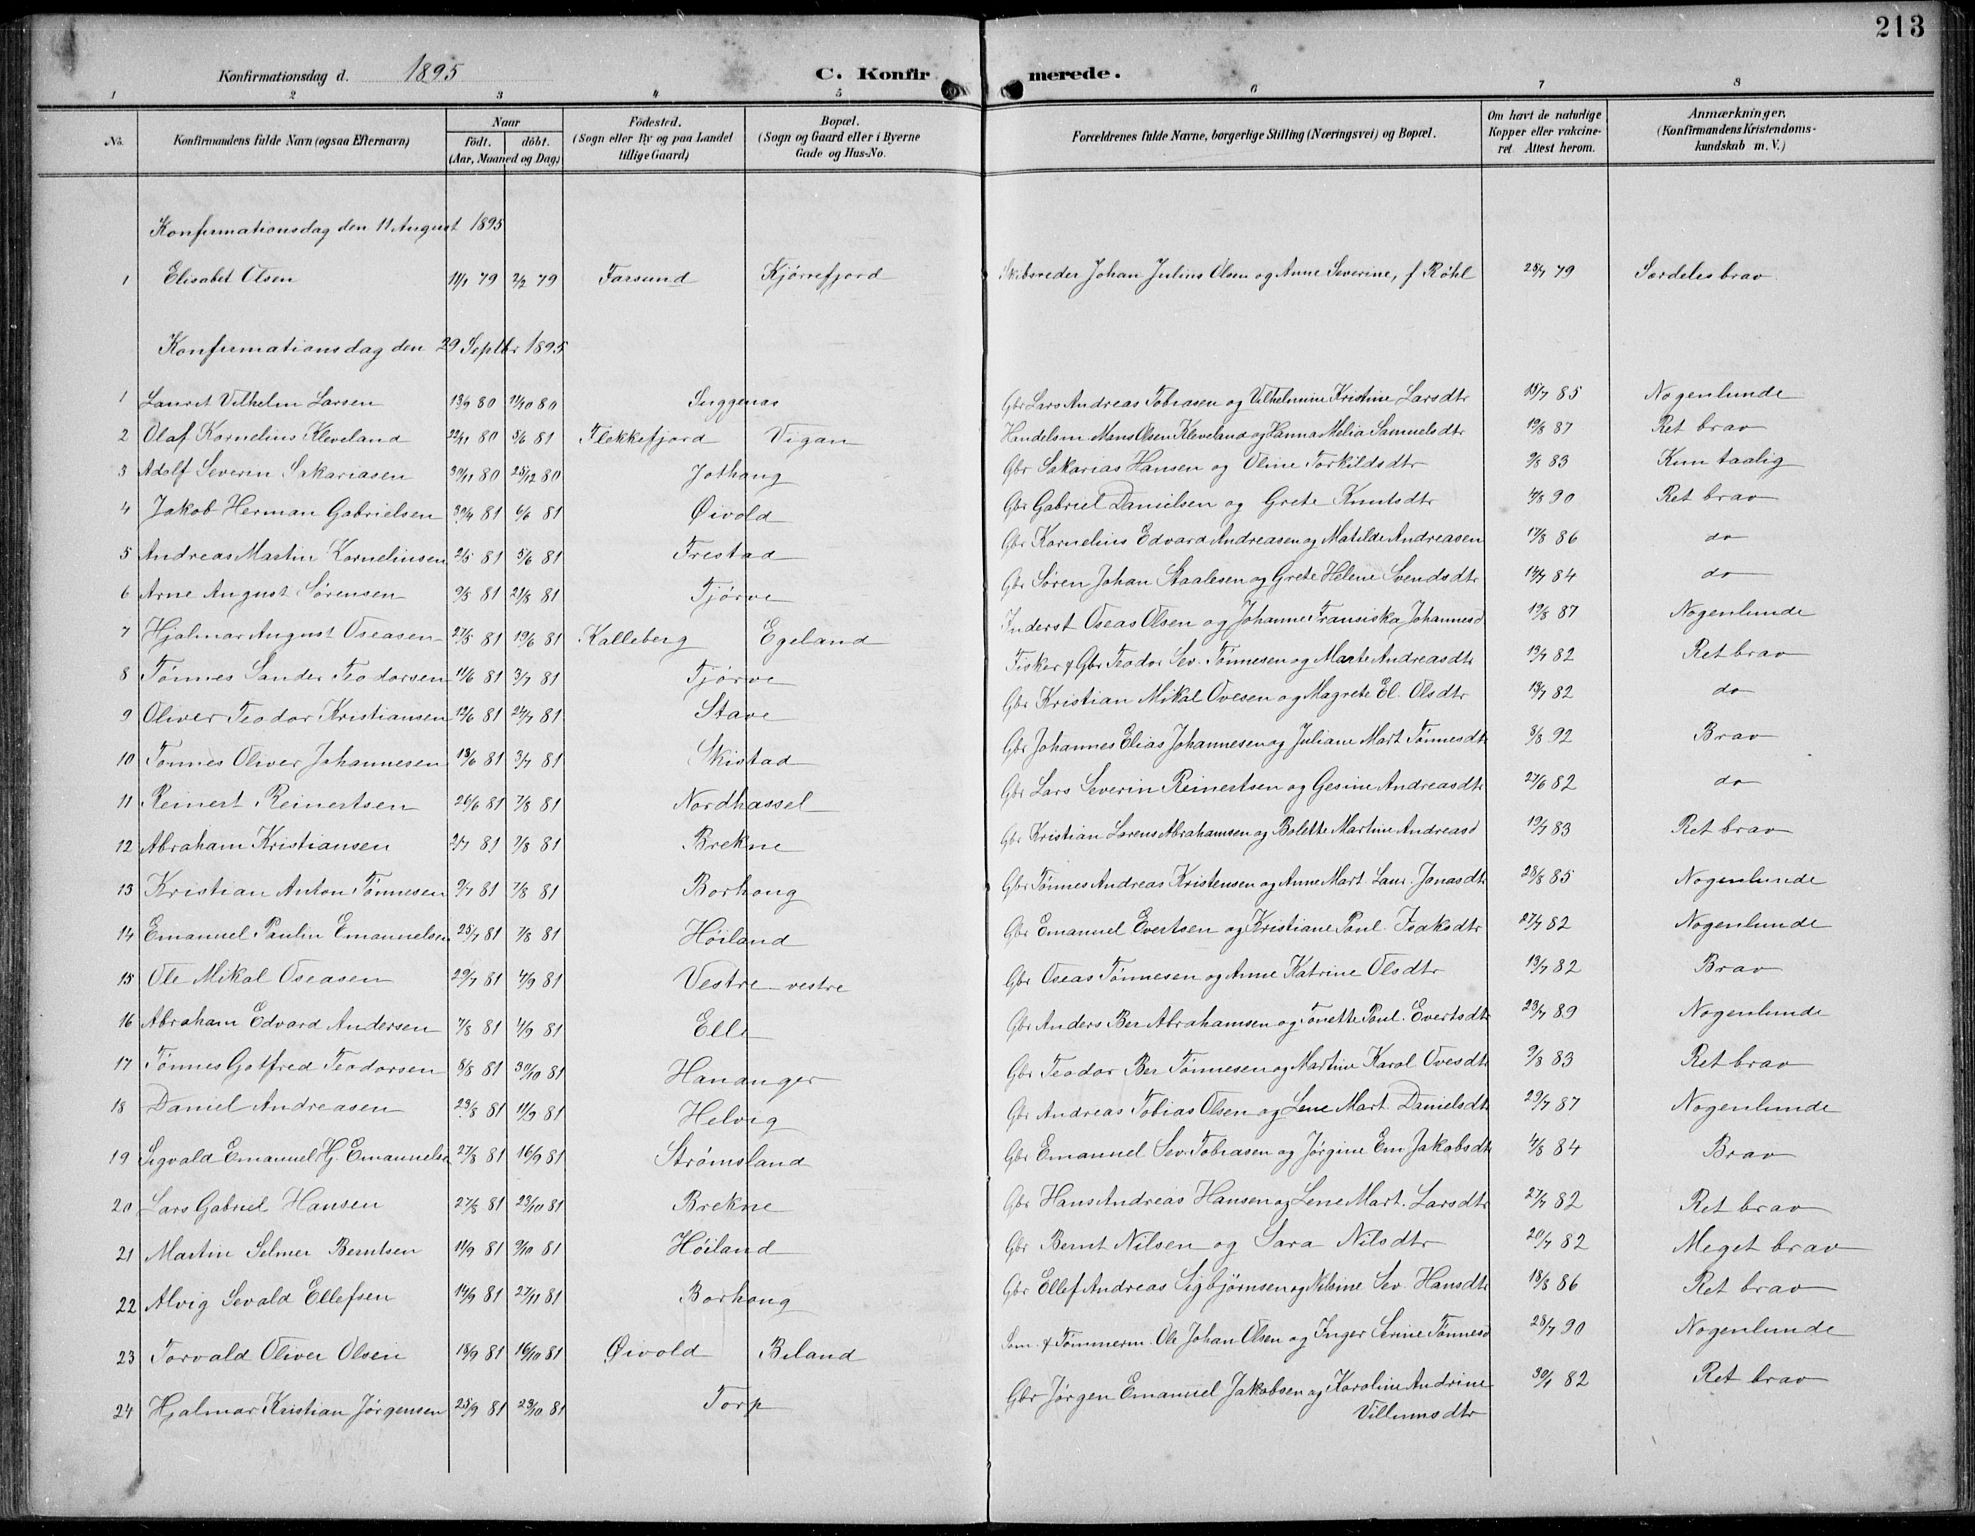 213
Konfirmationsdag d. 1895 C. Konfirmerede.
1 2 3 4 5 6 7 8
No. Konfirmandens fulde Navn (ogsaa Efternavn) Naar födt. döbt. (Aar, Maaned og Dag) Födested. (Sogn eller By og paa Landet tillige Gaard) Bopæl. (Sogn og Gaard eller i Byerne Gade og Hus-No. Forældrenes fulde Navne, borgerlige Stilling (Næringsvei) og Bopæl. Om havt de naturlige Kopper eller vakcineret. Attest herom. Anmærkninger. (Konfirmandens Kristendomskundskab m. V.)
Konfirmationsdag den 11 August 1895
1 Elisabet Olsen 11/1 79 2/2 79 Farsund Kjørrefjord Skibsreder Johan Julius Olsen og Anne Severine, f Röhl 28/7 79 Særdeles brav
Konfirmationsdag den 29 Septbr 1895
1 Laurit Vilhelm Larsen 13/9 80 11/10 80 Snggenas Gbr Lars Andreas Tobiasen og Vilhelmine Kristine Larsdtr 15/7 85 Nogenlunde
2 Olaf Kornelius Kleveland 22/11 80 5/6 81 Flekkefjord Vigan Handelsm Mons Olsen Kleveland og Hanna Melia Samuelsdtr 19/8 87 Ret brav
3 Adolf Severin Sakariasen 30/11 80 25/12 80 Jothaug Gbr Sakarias Hansen og Oline Torkildsdtr 9/8 83 Kun taalig
4 Jakob Herman Gabrielsen 30/4 81 6/6 81 Øivold Gbr Gabriel Danielsen og Grete Knutsdtr 4/8 90 Ret brav
5 Andreas Martin Kornelinsen 2/5 81 5/6 81 Frestad Gbr Kornelius Edvard Andreasen og Matilde Andreasen 17/8 86 do
6 Arne August Sørensen 9/5 81 21/8 81 Tjørve Gbr Søren Johan Staalesen og Grete Helene Svendsdtr 14/7 84 do
7 Hjalmar August Oseasen 27/5 81 19/6 81 Kalleberg Egeland Inderst Oseas Olsen og Johanne Fransiska Johannesd 19/8 87 Nogenlunde
8 Tønnes Sander Teodorsen 11/6 81 3/7 81 Tjørve Fisker & Gbr Teodor Sev. Tønnesen og Marte Andreasdtr 19/7 82 Ret brav
9 Oliver Teodor Kristiansen 12/6 81 24/7 81 Stave Gbr Kristian Mikal Ovesen og Magrete El. Olsdtr 13/7 82 do
10 Tønnes Oliver Johannesen 18/6 81 3/7 81 Skistad Gbr Johannes Elias Johannesen og Juliane Mart Tønnesdtr 8/8 92 Brav
11 Reinert Reinertsen 26/6 81 7/8 81 Nordhassel Gbr Lars Severin Reinertsen og Gesine Andreasdtr 27/6 82 do
12 Abraham Kristiansen 2/7 81 7/8 81 Brekne Gbr Kristian Lorens Abrahamsen og Bolette Martine Andreasd 19/7 83 Ret brav
13 Kristian Anton Tønnesen 9/7 81 7/8 81 Borhaug Gbr Tønnes Andreas Kristensen og Anne Mart. Laur. Jonasdtr 28/8 85 Nogenlunde
14 Emanuel Paulin Emanuelsen 25/7 81 7/8 81 Höiland Gbr Emanuel Evertsen og Kristiane Paul. Isaksdtr 27/7 82 Nogenlunde
15 Ole Mikal Oseasen 29/7 81 4/9 81 Vestre-vestre Gbr Oseas Tönnesen og Anne Katrine Olsdtr 13/7 82 Brav
16 Abraham Edvard Andersen 7/8 81 4/9 81 Elle Gbr Anders Ber Abrahamsen og Tonette Paul. Evertsdtr 23/7 89 Nogenlunde
17 Tønnes Gotfred Teodorsen 8/8 81 30/10 81 Hananger Gbr Teodor Ber Tønnesen og Martine Karol Ovesdtr 9/8 83 Ret brav
18 Daniel Andreasen 23/8 81 11/9 81 Helvig Gbr Andreas Tobias Olsen og Lene Mart. Danielsdtr 29/7 87 Nogenlunde
19 Sigvald Emanuel Hj. Emanuelse 27/8 81 16/9 81 Strömsland Gbr Emanuel Sev. Tobiasen og Jørgine Em Jakobsdtr 4/8 84 Brav
20 Lars Gabriel Hansen 27/8 81 23/10 81 Brekne Gbr Hans Andreas Hansen og Lene Mart. Larsdtr 27/7 82 Ret brav
21 Martin Selmer Berntsen 11/9 81 9/10 81 Höiland Gbr Bernt Nilsen og Sara Nilsdtr 20/7 82 Meget brav
22 Alvig Sevald Ellefsen 14/9 81 27/11 81 Borhaug Gbr Ellef Andreas Sigbjørnsen og Nilsine Sev. Hansdtr 18/8 86 Ret brav
23 Torvald Oliver Olsen 18/9 81 16/10 81 Øivold Biland Søm. & Tømmerm. Ole Johan Olsen og Inger Serine Tønnesd 28/7 90 Nogenlunde
24 Hjalmar Kristian Jørgensen 25/9 81 23/10 81 Torp Gbr Jørgen Emanuel Jakobsen og Karoline Andrine 30/1 82 Ret brav
Villumsdtr